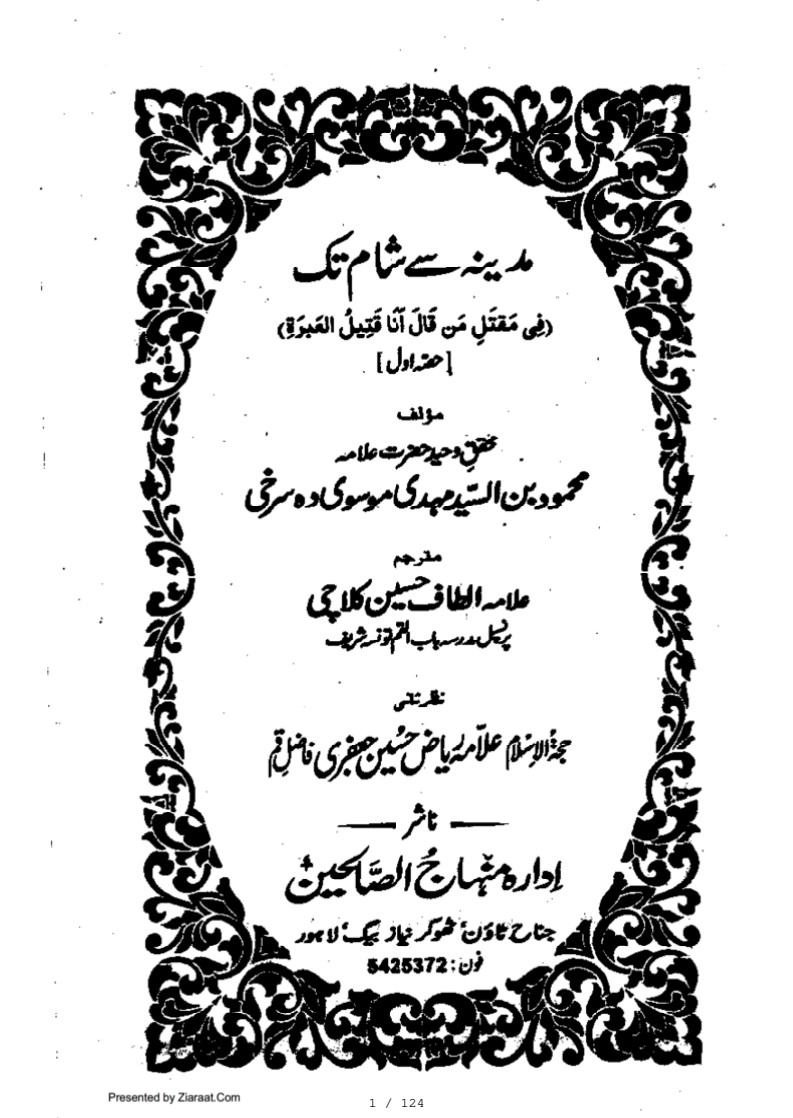 مدینہ سے شام تک
(فِی مَقتَلِ مَن قَالَ اَنَا قَتِیلُ العَبرَةِ)
[حصّہ اول]
مؤلف
محققِ وحید حضرت علامہ
محمود بن السّید مہدی موسوی دہ سرخی
مترجم
علامہ الطاف حسین کلاچی
پرنسپل مدرسہ باب القم تونسہ شریف
نظرثانی
حجۃ الاسلام علامہ ریاض حسین جعفری فاضلِ قم
ناشر
ادارہ منہاج الصّالحین
جناح ٹاؤن ٹھوکر نیاز بیگ لاہور
فون: 5425372
Presented by Ziaraat.Com
1 / 124